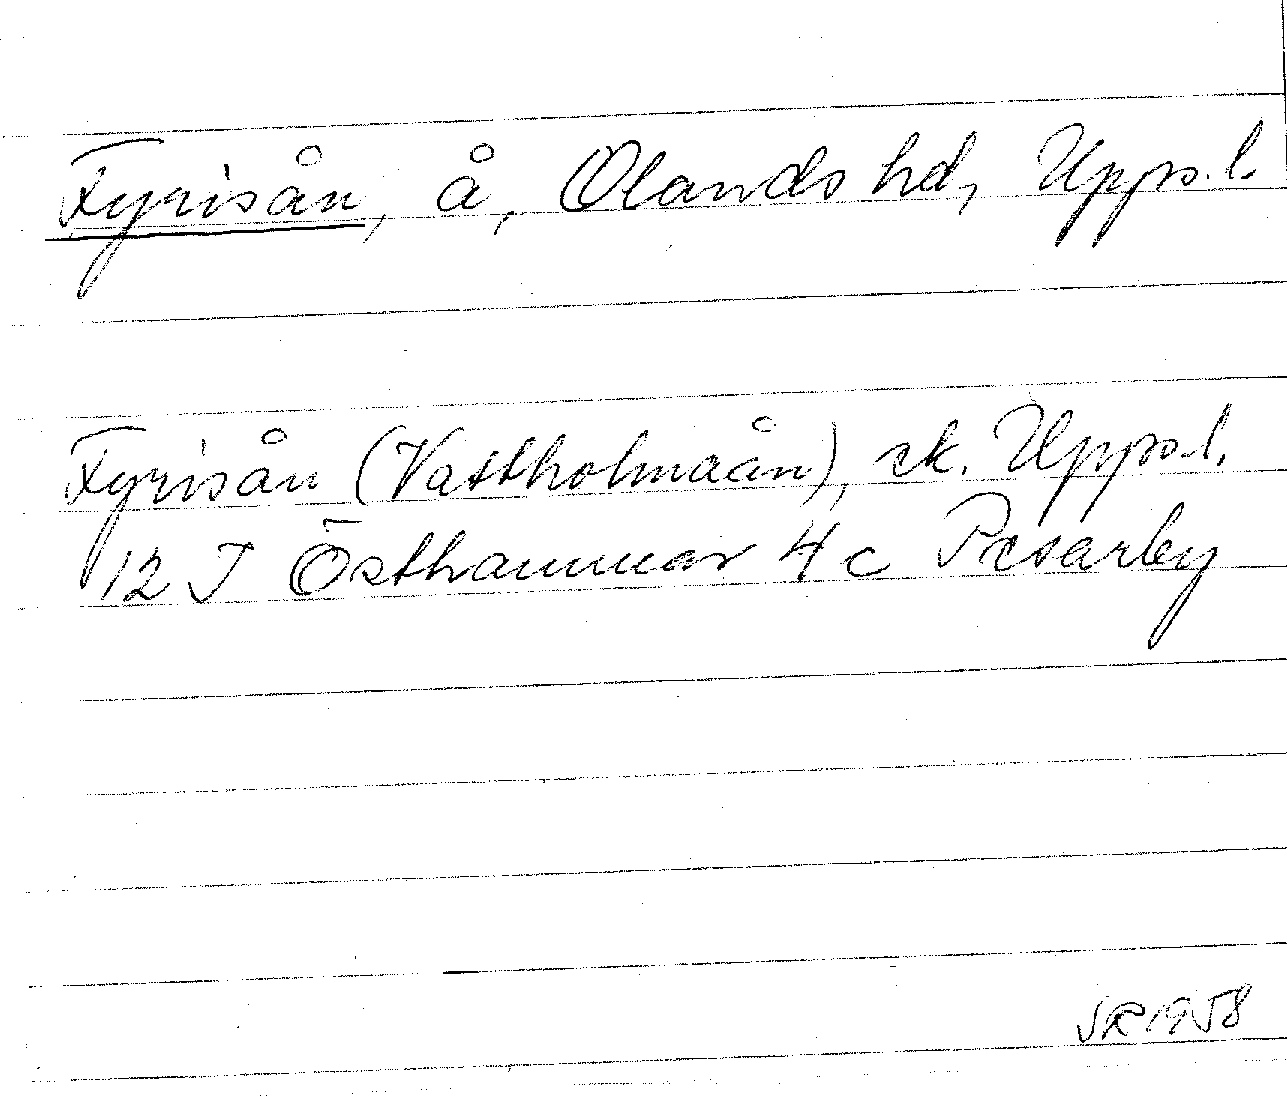 Fyrisån, å, Olands hd, Upps.l.
Fyrisån (Vattholmaån), ek. Upps.l.
12 I Östhammar 4c Pesarby
SR 1958